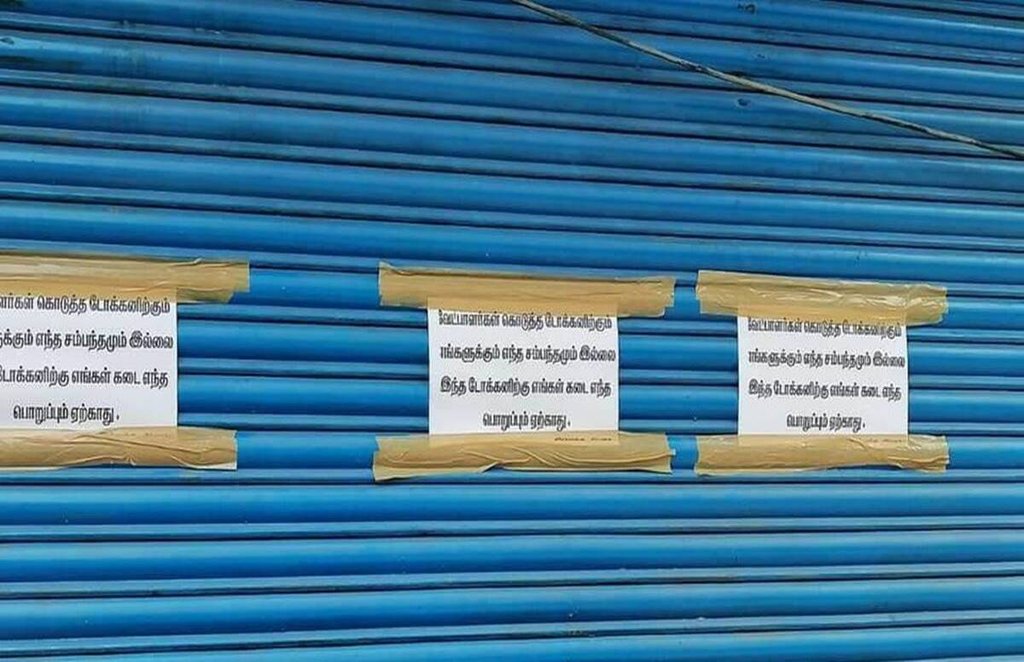 ளர்கள் கொடுத்த டோக்கனிற்கும்
க்கும் எந்த சம்பந்தமும் இல்லை
டோக்கனிற்கு எங்கள் கடை எந்த
பொறுப்பும் ஏற்காது .
வேட்பாளர்கள் கொடுத்த டோக்கனிற்கும்
ங்களுக்கும் எந்த சம்பந்தமும் இல்லை
இந்த டோக்கனிற்கு எங்கள் கடை எந்த
பொறுப்பும் ஏற்காது .
வேட்பாளர்கள் கொடுத்த டோக்கனிற்கும்
ங்களுக்கும் எந்த சம்பந்தமும் இல்லை
இந்த டோக்கனிற்கு எங்கள் கடை எந்த
பொறுப்பும் ஏற்காது .